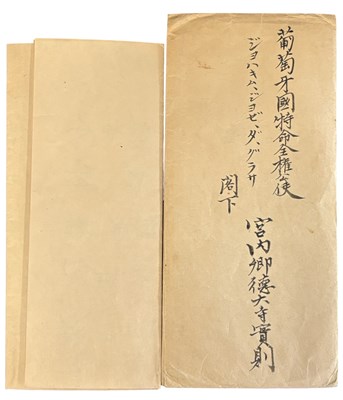 葡萄牙國特命全權公使
ジヨハキム、ジヨゼ、ダ、グラサ
閣下
宮内卿德大寺實則